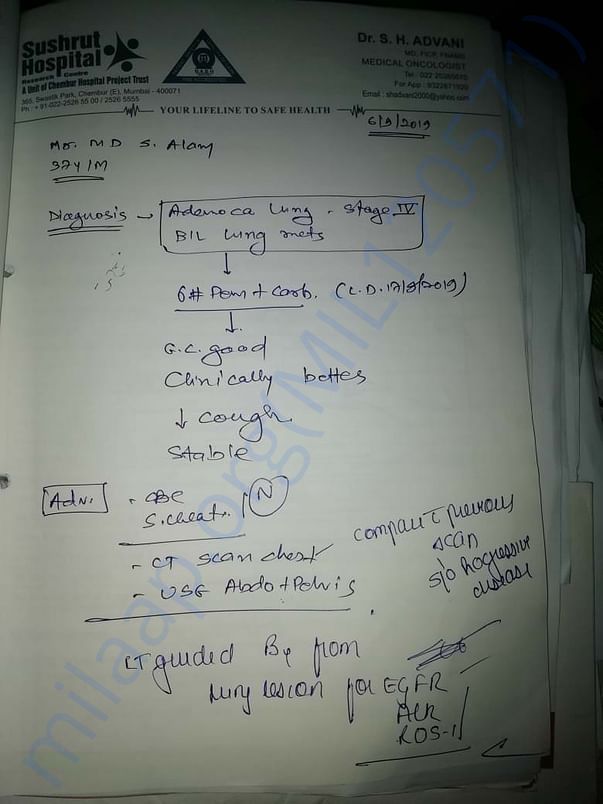 Sushrut
Hospital
Research Centre
A Unit of Chembur Hospital Project Trust
365, Swastik Park, Chembur (E), Mumbai - 400071
Ph : +91-022-2526 55 00 / 2526 5555
Dr. S. H. ADVANI
MEDICAL ONCOLOGIST
YOUR LIFELINE TO SAFE HEALTH
6/9/2019
Mr. MD S. Alam
37Y/M
Diagnosis → Adenoca Lung - Stage IV
B/L lung mets
↓
6# Pem + Carb. (L.D. 17/8/2019)
↓
G.C. good
Clinically better
↓ cough
Stable
Adv. - CBC
S. creat. (N)
- CT scan chest
- USG Abdo + Pelvis
compare c previous
scan
s/o progressive
disease
CT guided Bx from
lung lesion for EGFR
ALK
ROS-1
milaap.org(MIL120571)